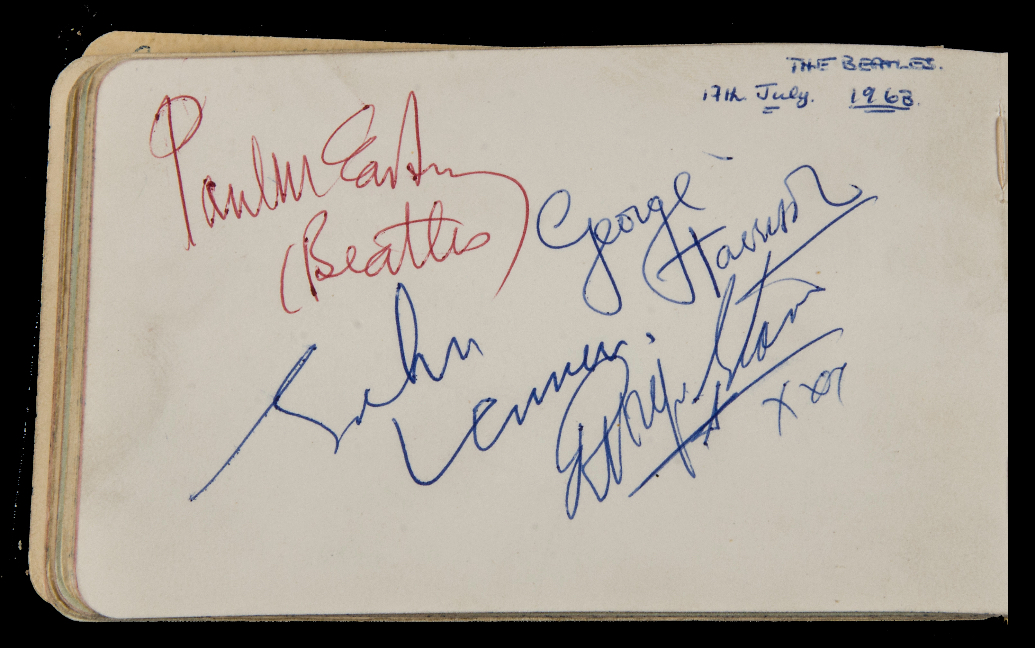 THE BEATLES.
17th July. 1963.
Paul McCartney
(Beatles)
George
Harrison
John
Lennon.
Ringo Starr
xxx